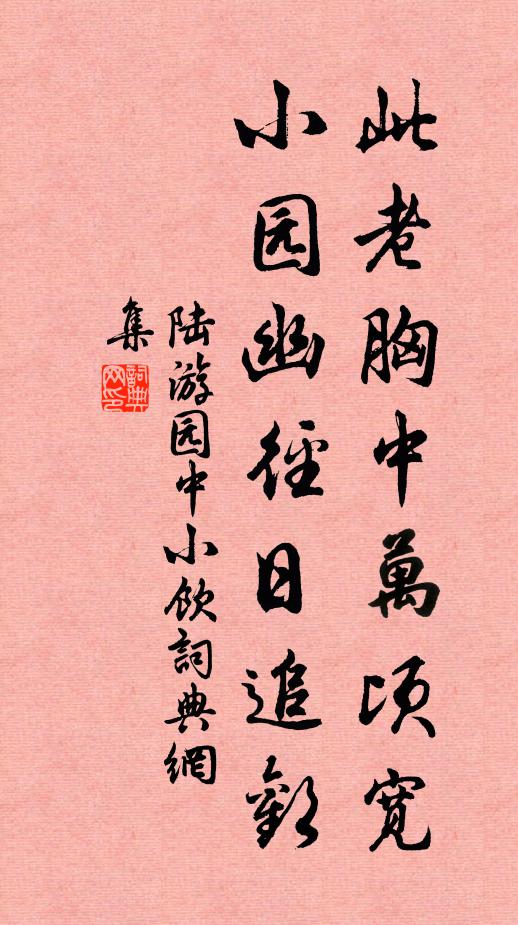 此老胸中萬頃寬
小园幽徑日追歡
陆游园中小飲詞典網
集
詞典
网印